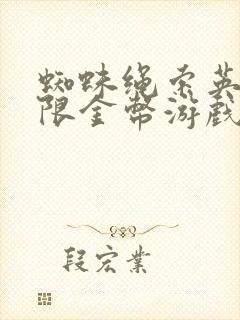 蜘蛛绳索英
限金币游戏
段宏业